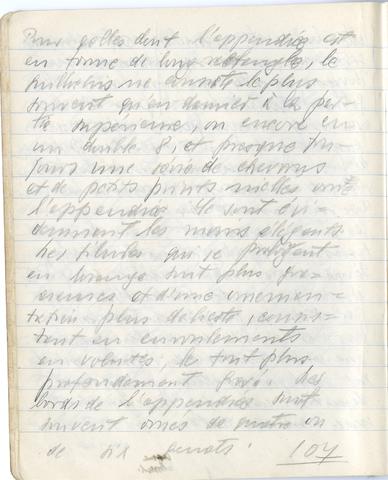 Pour celles dont l'appendice est
en forme de long rectangle, le
ne consiste le plus
souvent qu'en damier à la par-
tie supérieure, ou encore en
un double 8, et presque tou-
jours une série de chevrons
et de petits points niellés orne
l'appendice. Ce sont évi-
demment les moins élégants.
Les fibules qui se prolongent
en losange sont plus gra-
cieuses et d'une ornemen-
tation plus délicate, consis-
tant en enroulements
en volutes, le tout plus
profondément gravé. Les
bords de l'appendice sont
souvent ornés de quatre ou
de six
107